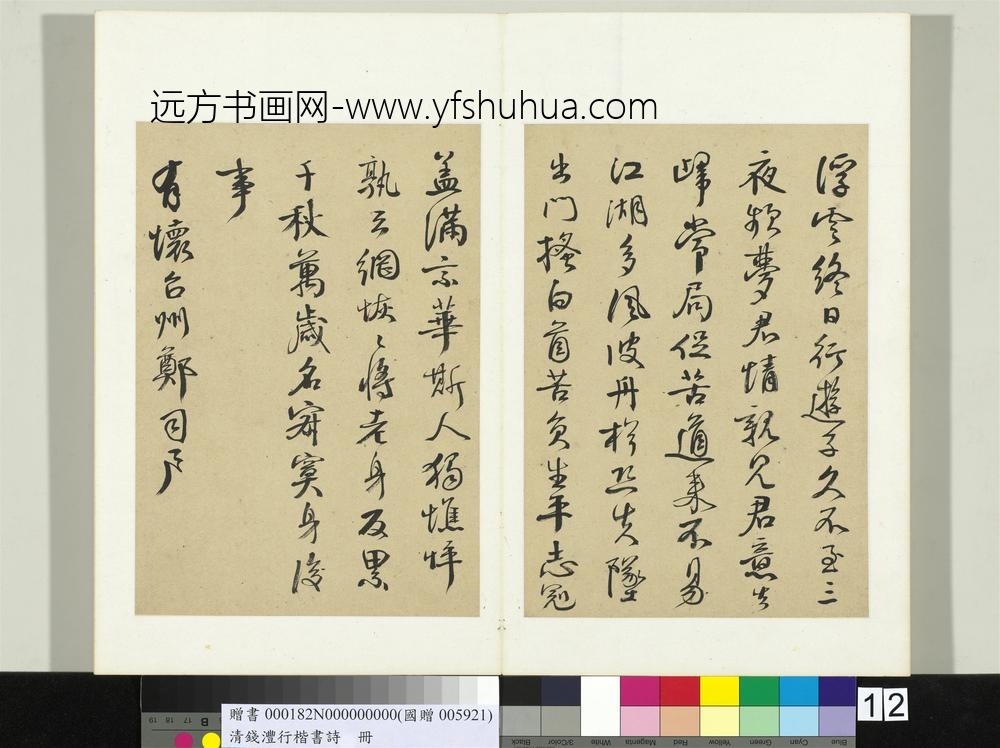 远方书画网-www.yfshuhua.com
浮雲終日行遊子久不至三
夜頻夢君情親見君意告
歸常局促苦道來不易
江湖多風波舟楫恐失墜
出門搔白首苦負生平志冠
蓋滿京華斯人獨憔悴
孰云網恢〻將老身反累
千秋萬歲名寂寞身後
事
有懷台州鄭司戶
12
贈書 000182N000000000(國贈 005921)
清錢灃行楷書詩 冊
19 18 17 B
Black 3/Color White Magenta Red Yellow Green Cyan Blue